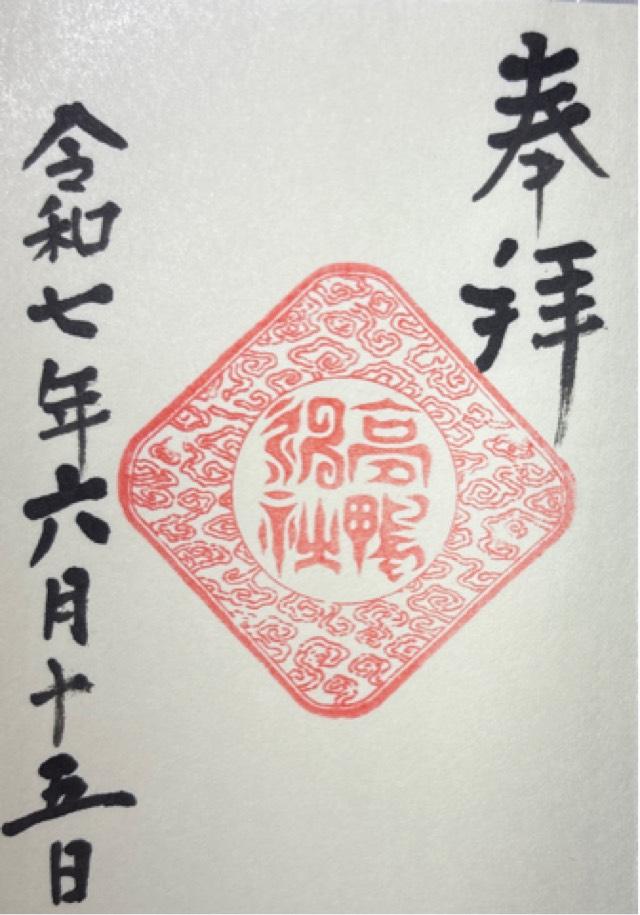 奉拝
高鴨
神社
令和七年六月十五日